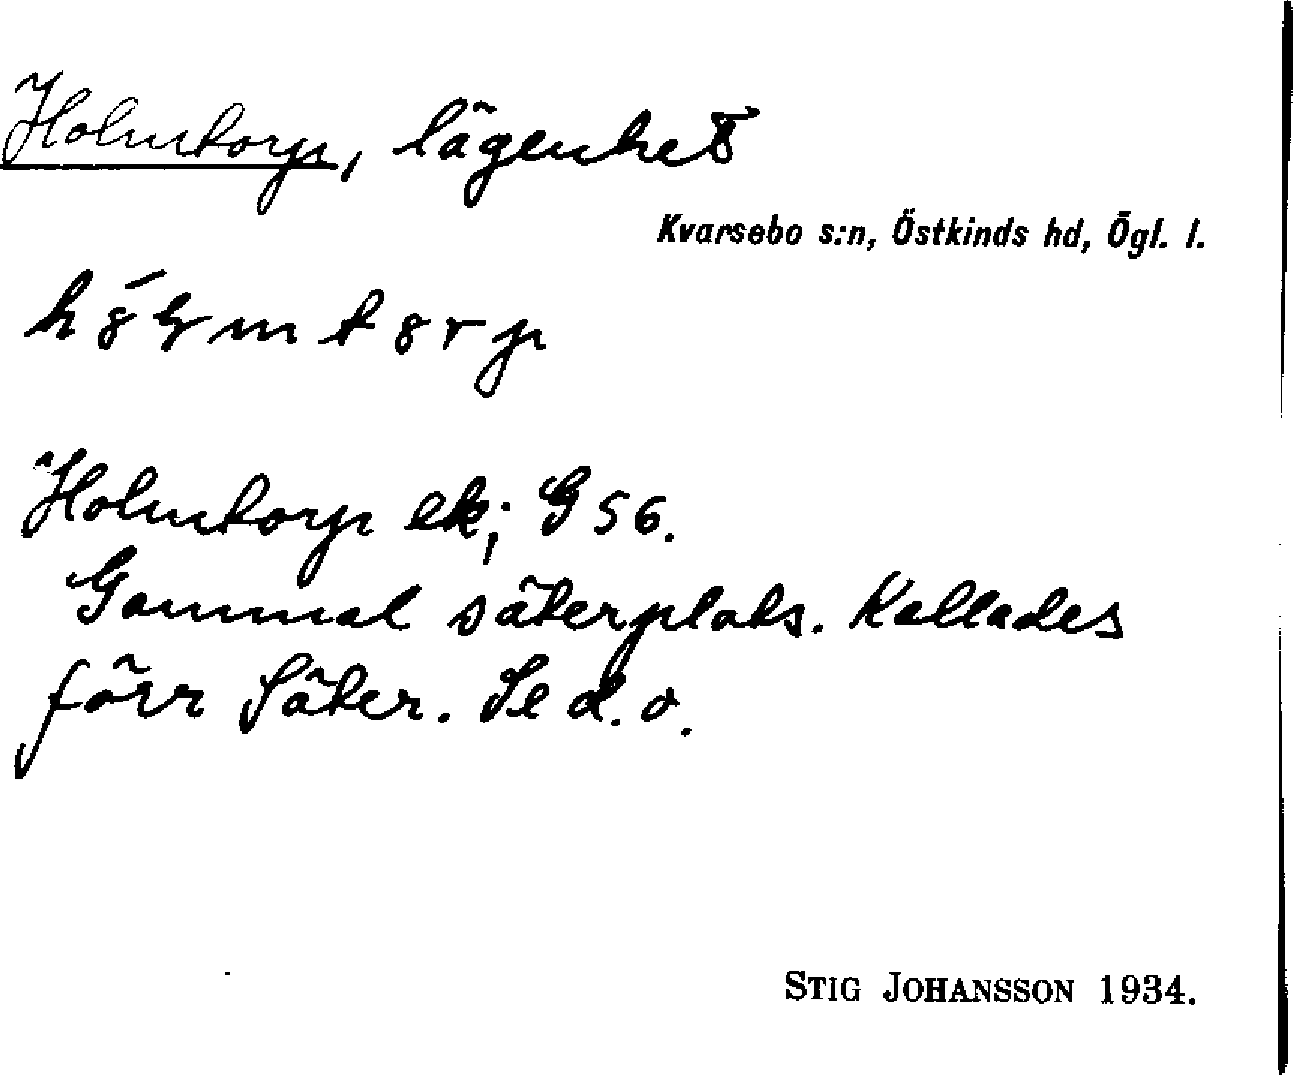 Holmtorp, lägenhet
Kvarsebo s:n, Östkinds hd, Ögl. l.
Holmtorp ek; G 56.
Gammal säterplats. Kallades
förr Säter. Se d. o.
STIG JOHANSSON 1934.